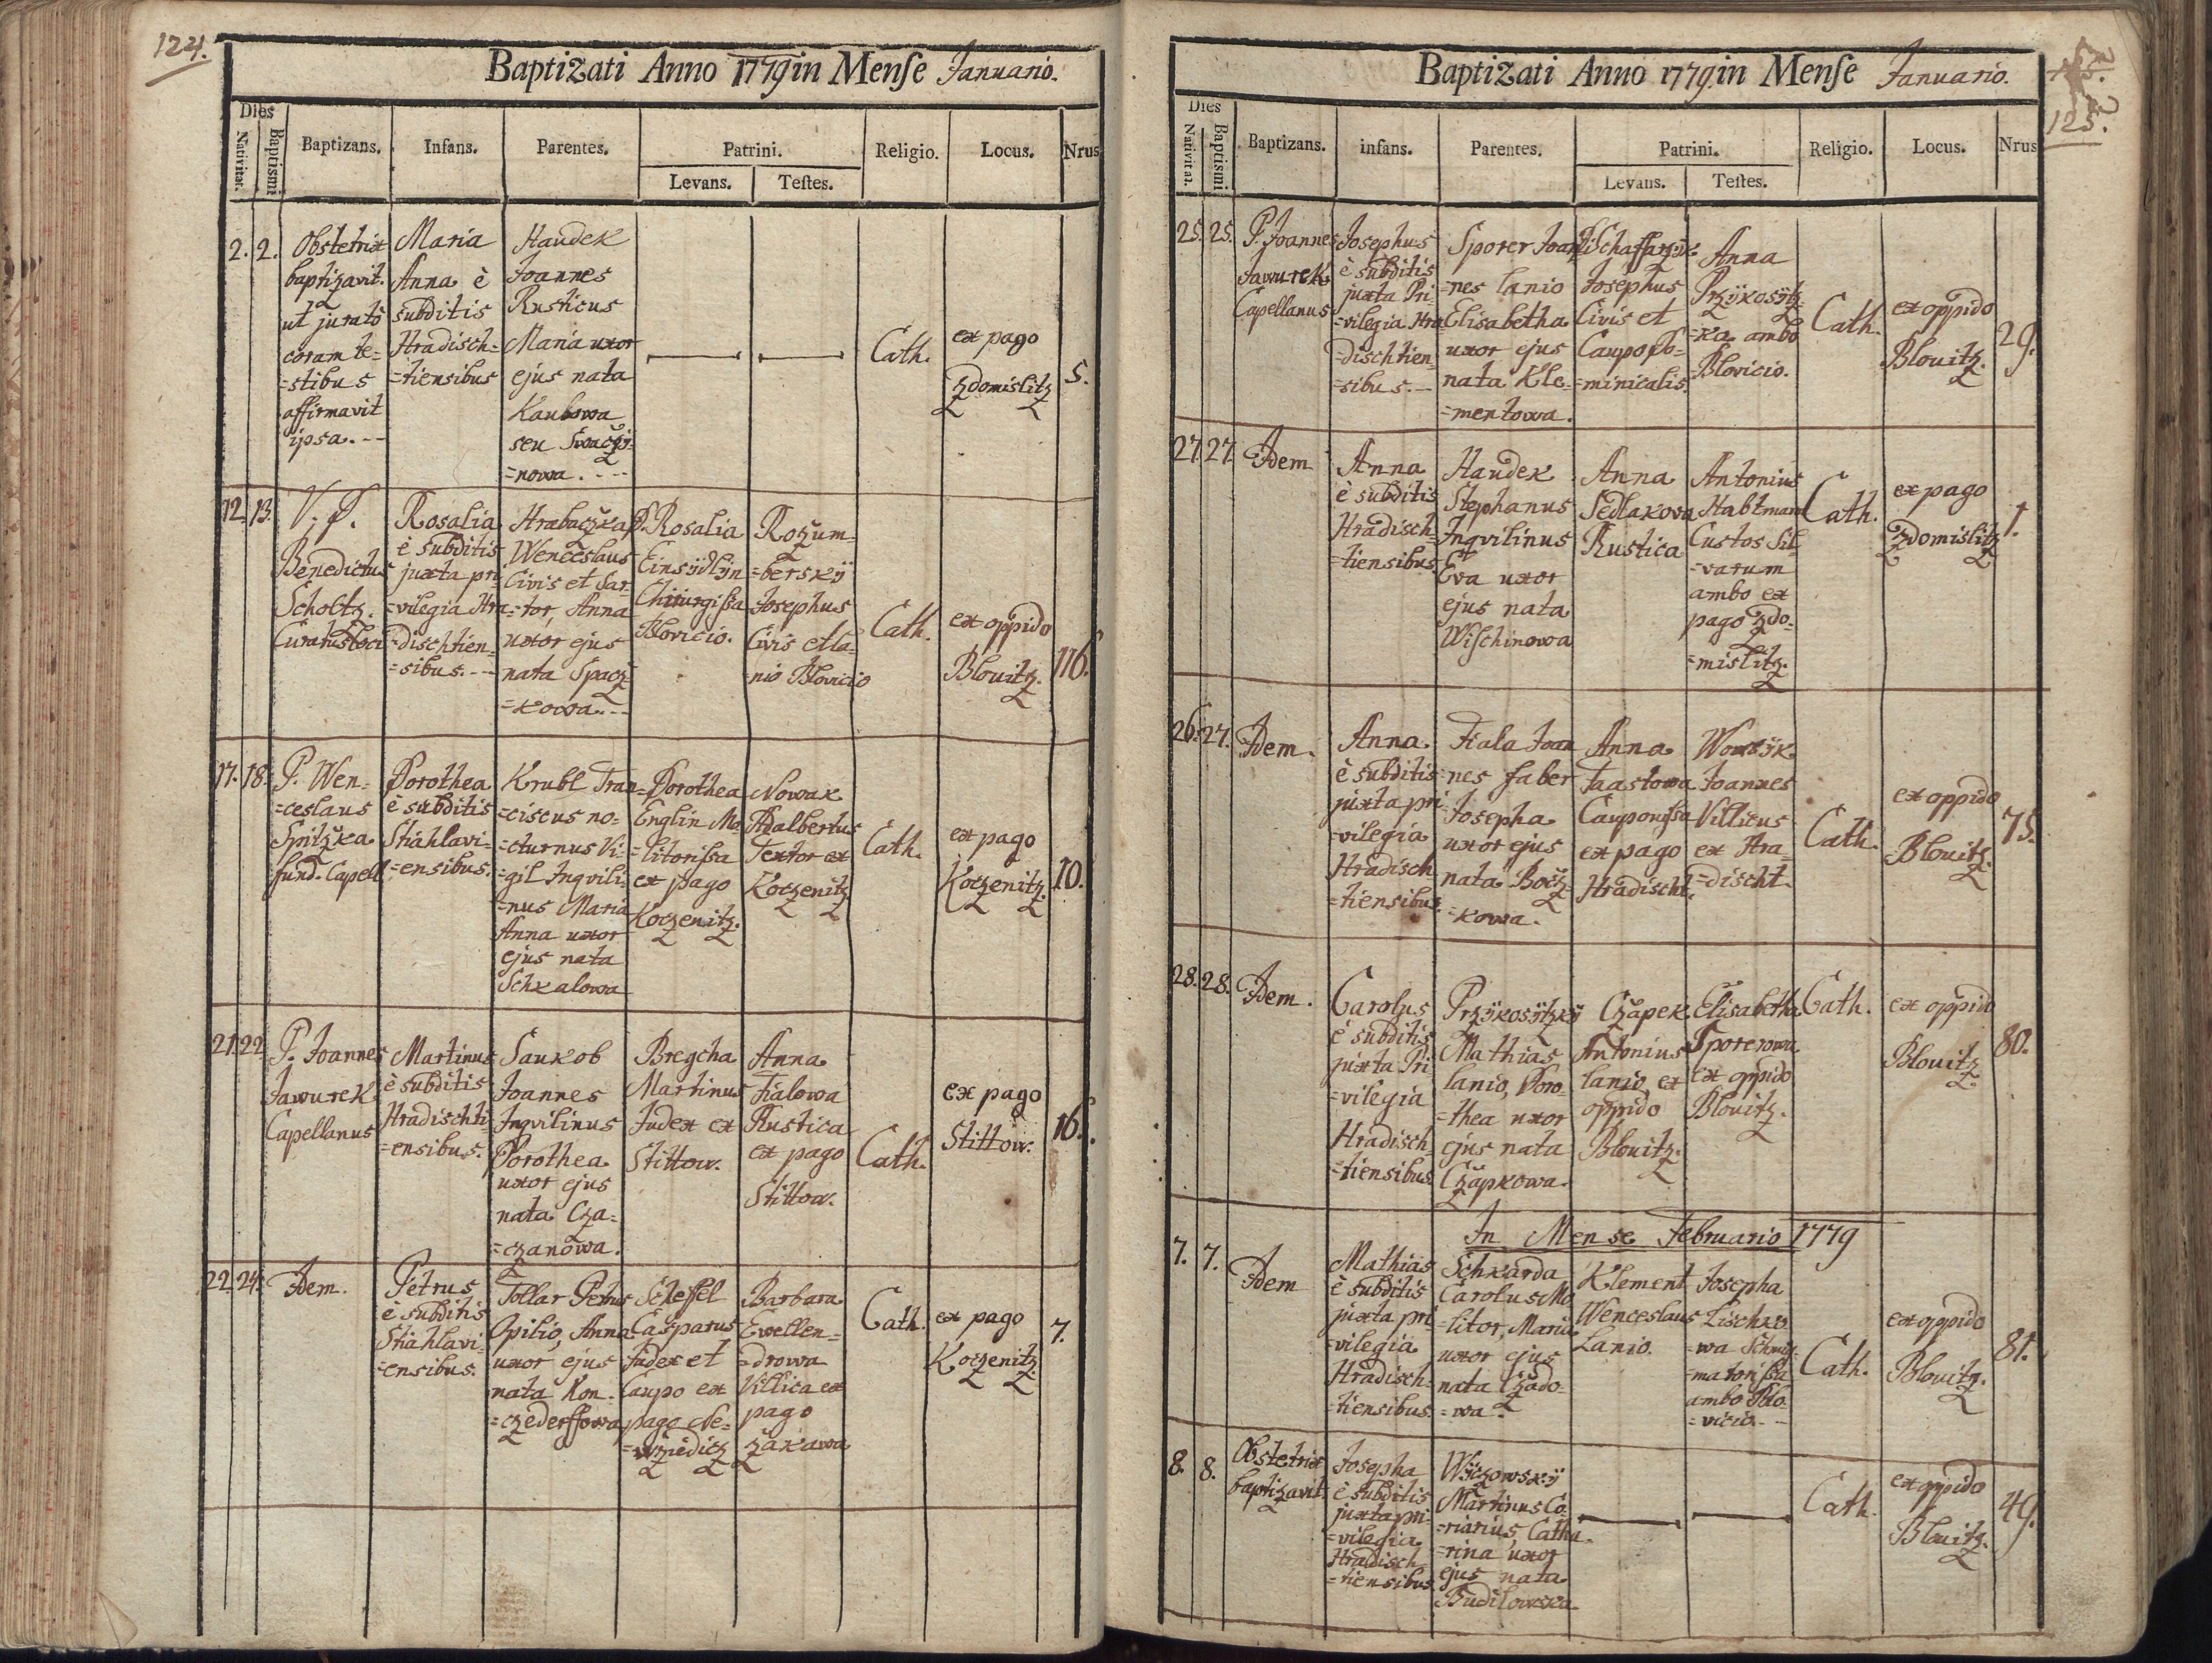 124.
Baptizati Anno 1779 in Mense Januario.
Dies
Nativitat.
Baptismi
Baptizans.
Infans.
Parentes.
Patrini.
Levans.
Testes.
Religio.
Locus.
Nrus
2.
2.
Obstetrix
baptizavit.
ut jurato
coram te-
=stibus
affirmavit
ipsa. --
Maria
Anna è
subditis
Hradisch=
=tiensibus
Haudek
Joannes
Rusticus
Maria uxor
ejus nata
Kaubowa
seu
=nowa. ---
Cath.
ex pago
Zdomislitz
5.
12.
13.
V. P.
Benedictus
Scholtz.
Curatus loci
Rosalia
è subditis
juxta pri-
=vilegia Hra
=dischtien=
=sibus. --
Hrabaczka
Wenceslaus
Civis et Sar-
=tor, Anna
uxor ejus
nata Spacz
=kowa. --
D. Rosalia
Einsÿdlÿn
Chirurgissa
Blovicio.
Rozum=
=berskÿ
Josephus
Civis et la-
=nio Blovicio
Cath.
ex oppido
Blouitz.
116.
17.
18.
P. Wen=
=ceslaus
Spitzka
fund. Capell
Dorothea
è subditis
Stiahlavi-
=ensibus.
Krubl Fran
=ciscus no-
=cturnus Vi-
=gil Inqvili-
=nus Maria
Anna uxor
ejus nata
Schkalowa
Dorothea
Englin Mo
=litorissa
ex pago
Koczenitz.
Nowak
Adalbertus
Textor ex
Koczenitz
Cath.
ex pago
Koczenitz.
10.
21.
22
P. Joannes
Jawurek
Capellanus
Martinus
è subditis
Hradischti-
=ensibus.
Saukob
Joannes
Inqvilinus
Dorothea
uxor ejus
nata Cza-
=czanowa.
Bregcha
Martinus
Judex ex
Stittow.
Anna
Fialowa
Rustica
ex pago
Stittow.
Cath.
ex pago
Stittow.
16.
22.
24.
Idem.
Petrus
è subditis
Stiahlavi-
=ensibus.
Tollar Petrus
Opilio, Anna
uxor, ejus
nata Kon-
=czederffowa
Scheffel
Casparus
Judex et
Caupo ex
pago Ne-
Barbara
Ewellen=
=drowa
Villica ex
pago
Žakawa
Cath.
ex pago
Koczenitz.
7.
Baptizati Anno 1779. in Mense Januario.
125.
Dies
Nativitat.
Baptismi
Baptizans.
infans.
Parentes.
Patrini.
Levans.
Testes.
Religio.
Locus.
Nrus
25.
25.
P. Joannes
Jawurek
Capellanus
Josephus
è subditis
juxta Pri-
=vilegia Hra
=dischtien
=sibus. --
Sporer Joan
=nes lanio
Elisabetha
uxor ejus
nata Kle-
=mentowa.
Josephus
Civis et
Caupo Do-
=minicalis.
Anna
Przÿkosÿtz
=ka ambo
Blovicio.
Cath.
ex oppido
Blouitz.
29.
27.
27.
Idem
Anna
è subditis
Hradisch-
=tiensibus.
Haudek
Stephanus
Inqvilinus
Eva uxor
ejus nata
Wischinowa
Anna
Sedlakowa
Rustica
Antonius
Habtman
Custos Sil-
=varum
ambo ex
pago Zdo-
=mislitz.
Cath.
ex pago
Zdomislitz
1.
26.
27.
Idem.
Anna.
è subditis
juxta pri-
=vilegia
Hradisch
=tiensibus.
Fiala Joan
=nes faber
Josepha
uxor ejus
nata Bocz-
=kowa.
Anna
Taastowa
Cauponissa
ex pago
Hradischt.
Joannes
Villicus
ex Hra-
=discht.
Cath.
ex oppido
Blouitz.
75.
28.
28.
Idem.
Carolus
è subditis
juxta Pri
=vilegia
Hradisch
=tiensibus.
Przÿkosÿtzkÿ
Mathias
lanio, Doro-
=thea uxor
ejus nata
Czapkowa.
Czapek
Antonius
lanio ex
oppido
Blouitz.
Elisabetha
Sporerowa
ex oppido
Blouitz.
Cath.
ex oppido
Blouitz.
80.
In Mense Februario 1779
7.
7.
Idem
Mathias
è subditis
juxta pri-
=vilegia
Hradisch-
=tiensibus.
Schkarda
Carolus Mo
=litor, Maria
uxor ejus
nata Czado-
=wa.
Klement
Wenceslaus
Lanio.
Josepha
Lischko
=wa
=matorissa
ambo Blo-
=vicio. --
Cath.
ex oppido
Blouitz.
81.
8.
8.
Obstetrix
baptizavit.
Josepha
è subditis
juxta pri-
=vilegia
Hradisch
=tiensibus.
Wÿczowskÿ
Martinus Co-
=riarius, Catha-
=rina uxor
ejus nata
Budilowska
Cath.
ex oppido
Blouitz.
49.